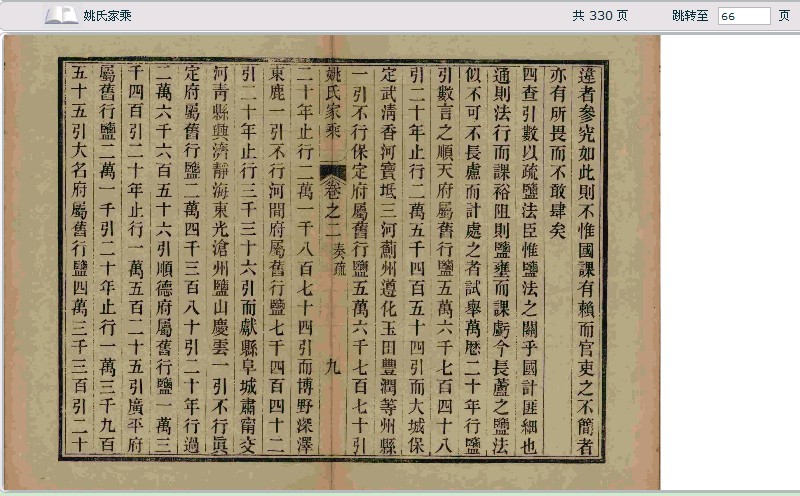 姚氏家乘
共 330 页
跳转至 66 页
違者參究如此則不惟國課有賴而官吏之不簡者
亦有所畏而不敢肆矣
四查引數以疏鹽法臣惟鹽法之關乎國計匪細也
通則法行而課裕阻則鹽壅而課虧今長蘆之鹽法
似不可不長慮而計處之者試舉萬曆二十年行鹽
引數言之順天府屬舊行鹽五萬六千七百四十八
引二十年止行二萬五千四百五十四引而大城保
定武清香河寶坻三河薊州遵化玉田豐潤等州縣
一引不行保定府屬舊行鹽五萬六千七百七十引
姚氏家乘 卷之二 奏疏 九
二十年止行二萬一千八百七十四引而博野深澤
東鹿一引不行河間府屬舊行鹽七千四百四十二
引二十年止行三千三十六引而獻縣阜城肅甯交
河青縣興濟靜海東光滄州鹽山慶雲一引不行眞
定府屬舊行鹽二萬四千三百八十引二十年行過
二萬六千六百五十六引順德府屬舊行鹽一萬三
千四百引二十年止行一萬五百二十五引廣平府
屬舊行鹽二萬一千引二十年止行一萬三千九百
五十五引大名府屬舊行鹽四萬三千三百引二十